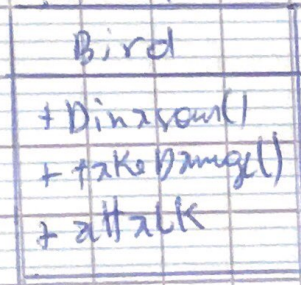 Bird
+ Dinarowr()
+ takeDamge()
+ attack